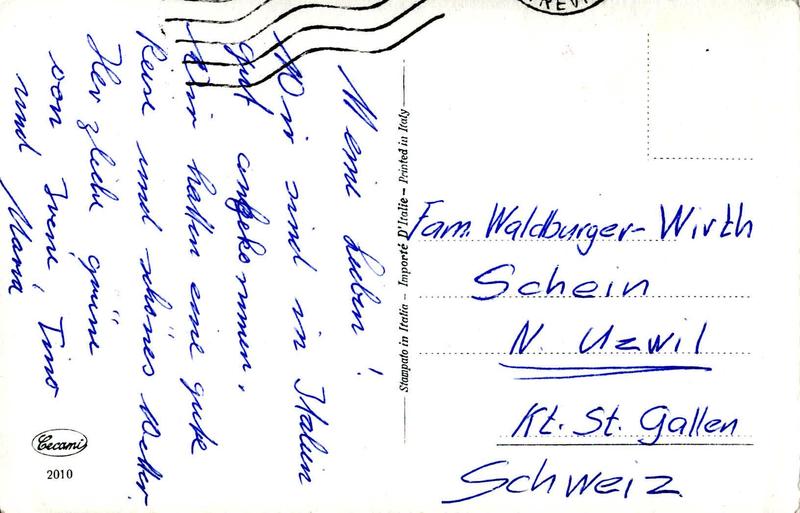 Meine Lieben!
Wir sind in Italien
gut angekommen.
Wir hatten eine gute
Reise und schönes Wetter.
Herzliche grüse
von Irene, Tino
und Maria
Stampato in Italia – Importé D'Italie – Printed in Italy
Fam. Waldburger-Wirth
Schein
N. Uzwil
Kt. St. Gallen
Schweiz
Cecami
2010